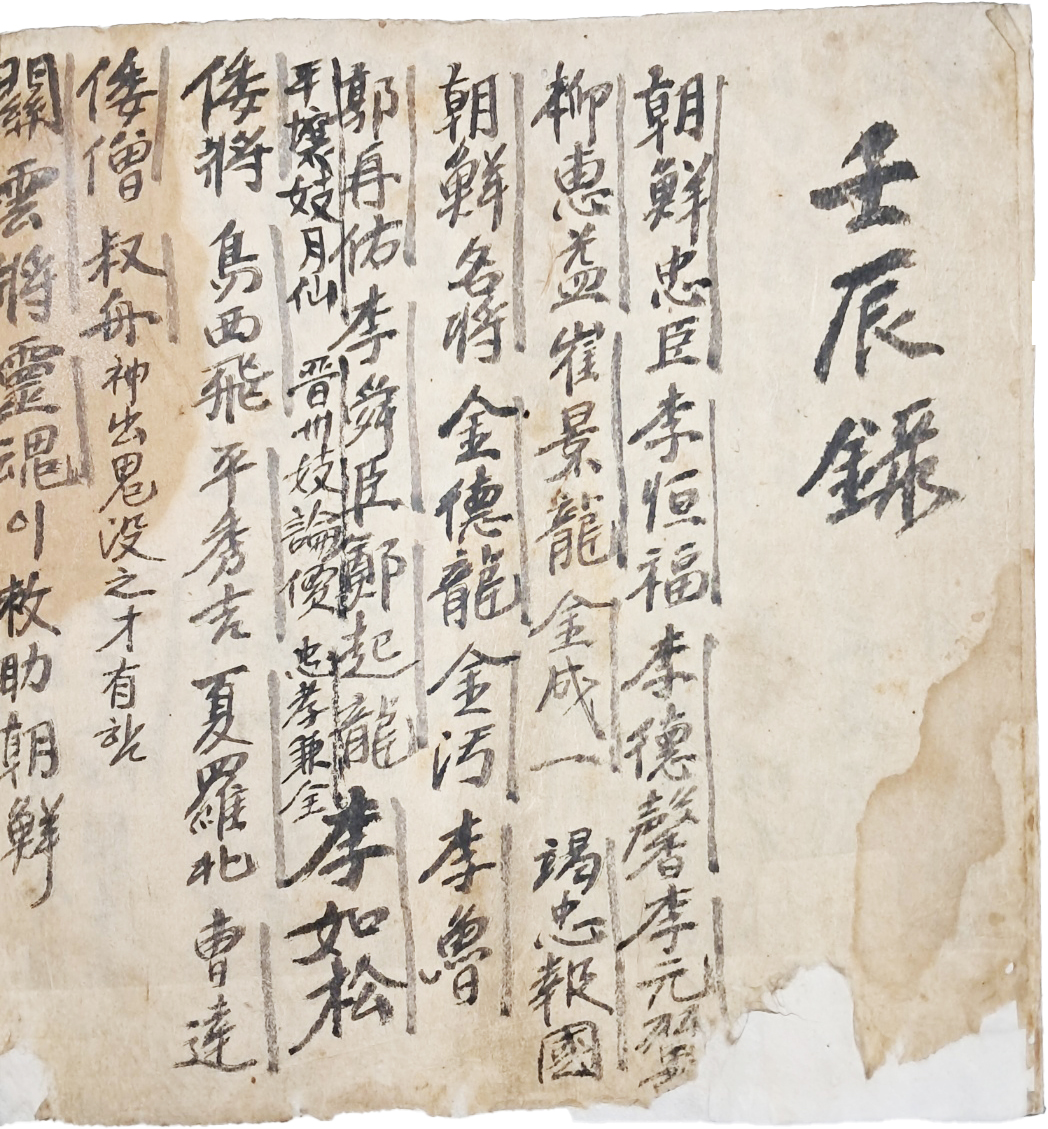 壬辰錄
朝鮮忠臣 李恒福 李德馨 李元翼
柳惠益 崔景龍 金成一 竭忠報國
朝鮮名將 金德龍 金沔 李魯
郭再佑 李舜臣 鄭起龍 李如松
平壤妓月仙 晋州妓論價 忠孝兼全
倭將 鳥西飛 平秀吉 夏羅北 曹達
倭僧 叔舟 神出鬼没之才有
關雲將靈魂이 救助朝鮮